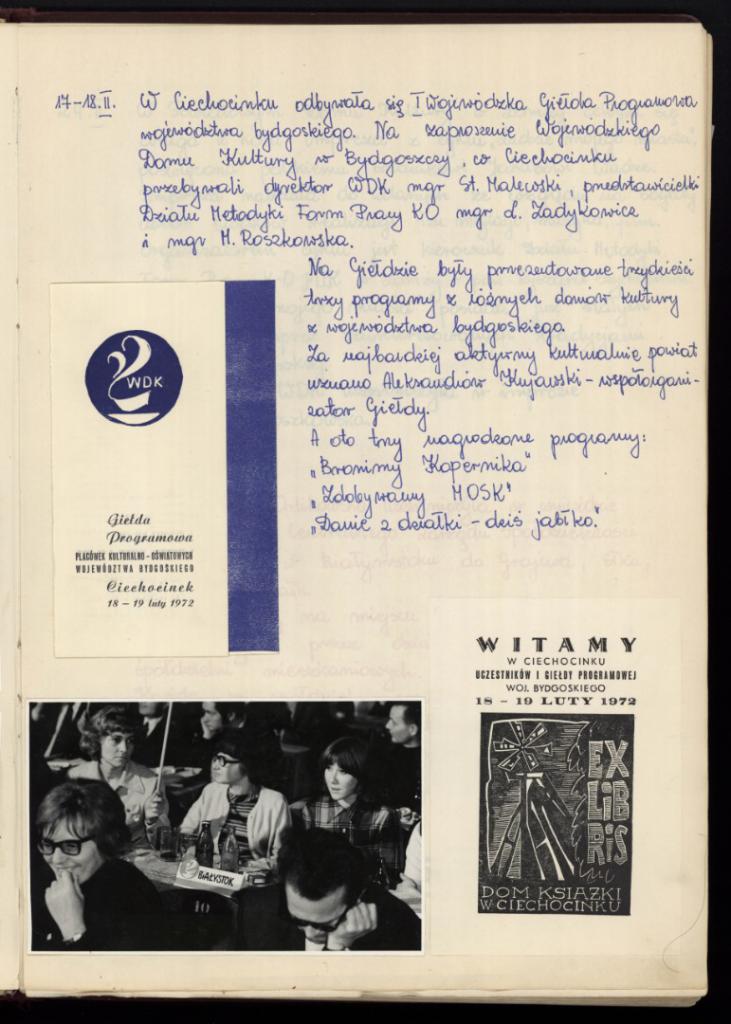 17-18.II. W Ciechocinku odbywała się I Wojewódzka Giełda Programowa
województwa bydgoskiego. Na zaproszenie Wojewódzkiego
Domu Kultury w Bydgoszczy, w Ciechocinku
przebywali dyrektor WDK mgr St. Malewski, przedstawicielki
Działu Metodyki Form Pracy KO mgr L. Zadykowicz
i mgr M. Roszkowska.
Na Giełdzie były prezentowane trzydzieści
trzy programy z różnych domów kultury
z województwa bydgoskiego
Za najbardziej aktywny kulturalnie powiat
uznano Aleksandrów Kujawski - współorgani-
zator Giełdy.
A oto trzy nagrodzone programy:
„Bronimy Kopernika"
„Zdobywamy MOSK"
„Danie z działki - dziś jabłko."
WDK
Giełda
Programowa
PLACÓWEK KULTURALNO - OŚWIATOWYCH
WOJEWÓDZTWA BYDGOSKIEGO
Ciechocinek
18 — 19 luty 1972
WITAMY
W CIECHOCINKU
UCZESTNIKÓW I GIEŁDY PROGRAMOWEJ
WOJ. BYDGOSKIEGO
18 - 19 LUTY 1972
EX
LIBRIS
DOM KSIĄŻKI
W CIECHOCINKU
BIAŁYSTOK
10